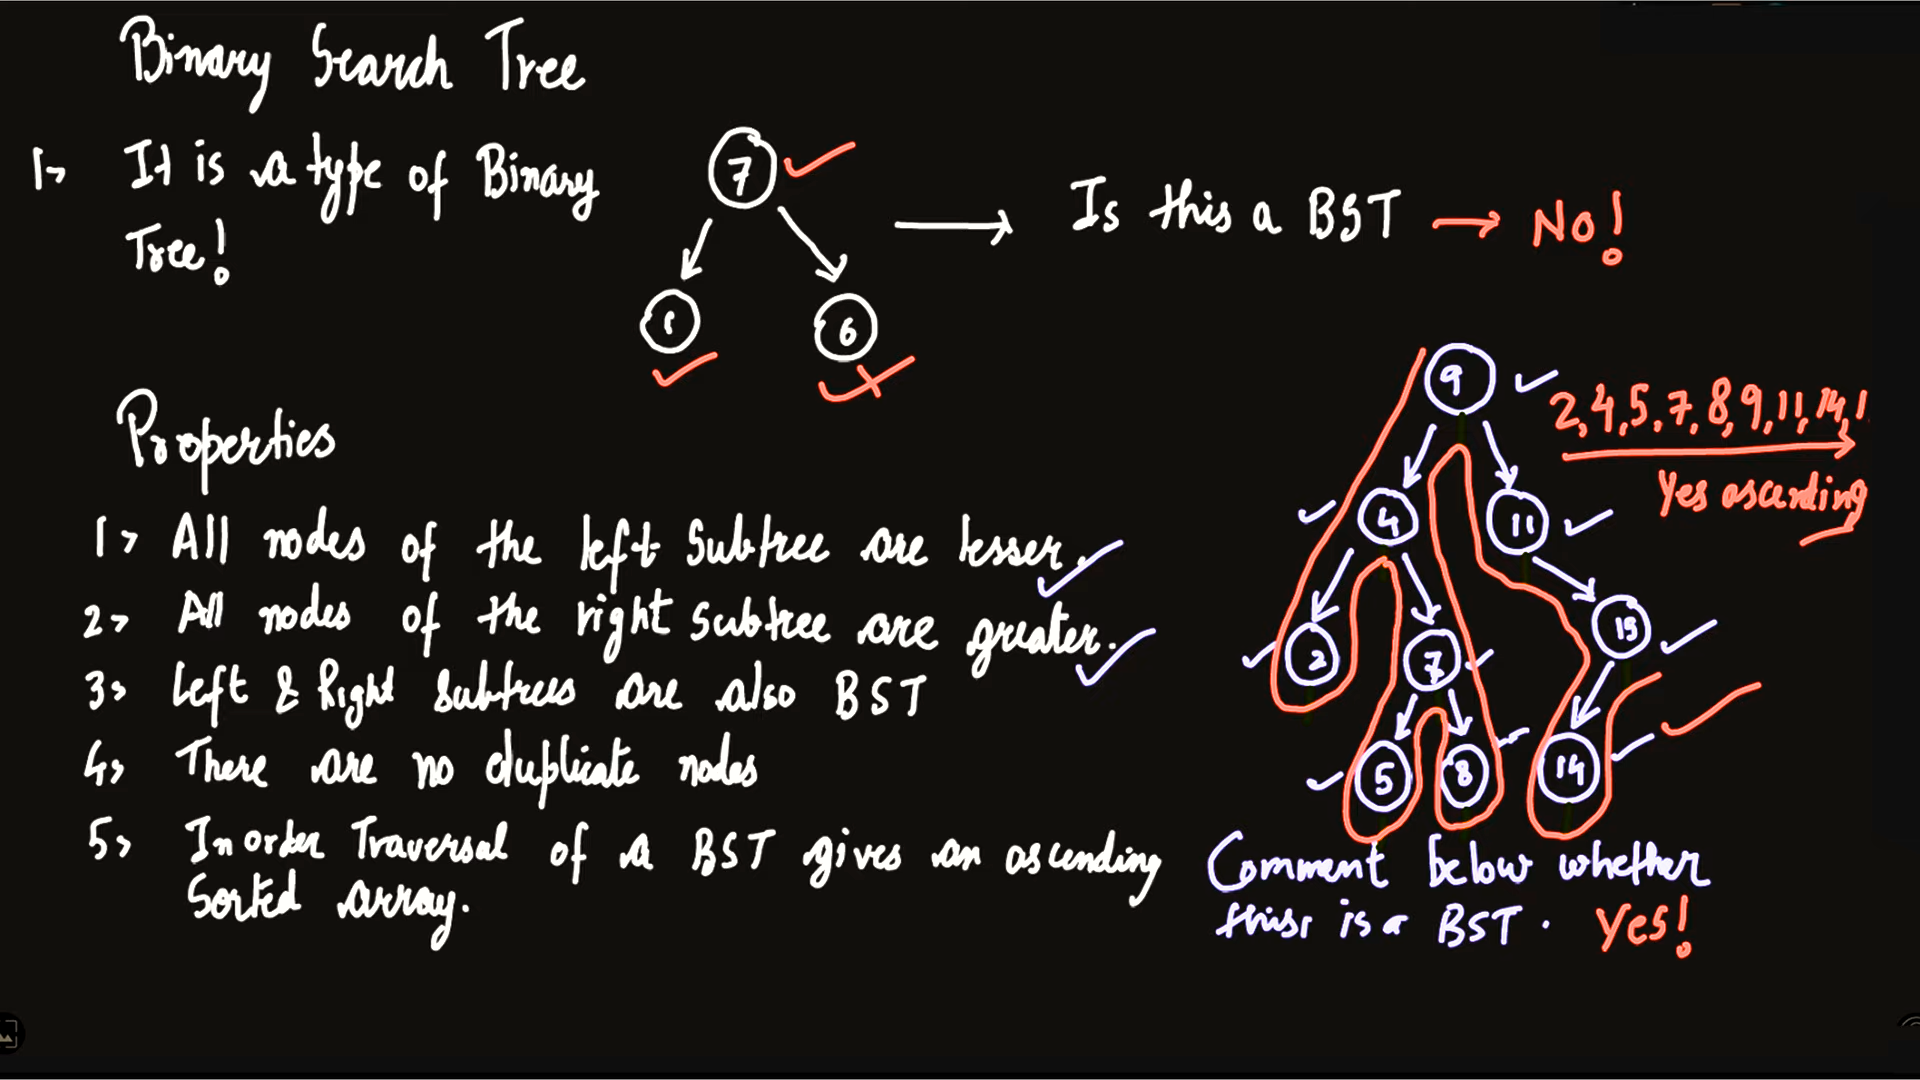 Binary Search Tree
1> It is a type of Binary
Tree!
7
1
6
Is this a BST → No!
Properties
1> All nodes of the left Subtree are lesser.
2> All nodes of the right subtree are greater.
3> Left & Right subtrees are also BST
4> There are no duplicate nodes
5> Inorder Traversal of a BST gives an ascending
Sorted array.
9
2,4,5,7,8,9,11,14,1
Yes ascending
4
11
2
7
15
5
8
14
Comment below whether
this is a BST. Yes!